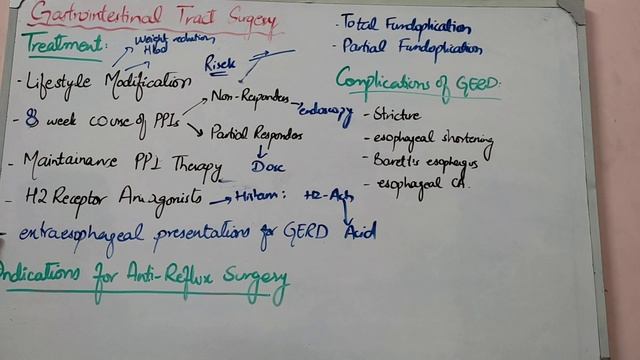 Gastrointestinal Tract Surgery
Treatment:
Weight reduction
HBOd
- Lifestyle Modification
Risek
- 8 week course of PPIs
Non-Responders
endoscopy
Partial Responders
Dose
- Maintainance PPI Therapy
- H2 Receptor Anagonists → Histam: H2-Ach
Acid
- extraesophageal presentations for GERD
Indications for Anti-Reflux Surgery
- Total Fundoplication
- Partial Fundoplication
Complications of GERD:
- Stricture
- esophageal shortening
- Baretts esophagus
- esophageal CA.